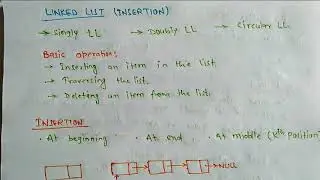 LINKED LIST (INSERTION)
→ Singly LL → Doubly LL → Circular LL
Basic operations:
→ Inserting an item in the list.
→ Traversing the list.
→ Deleting an item from the list.
INSERTION
· At beginning · At end · At middle (kth position)
→NULL